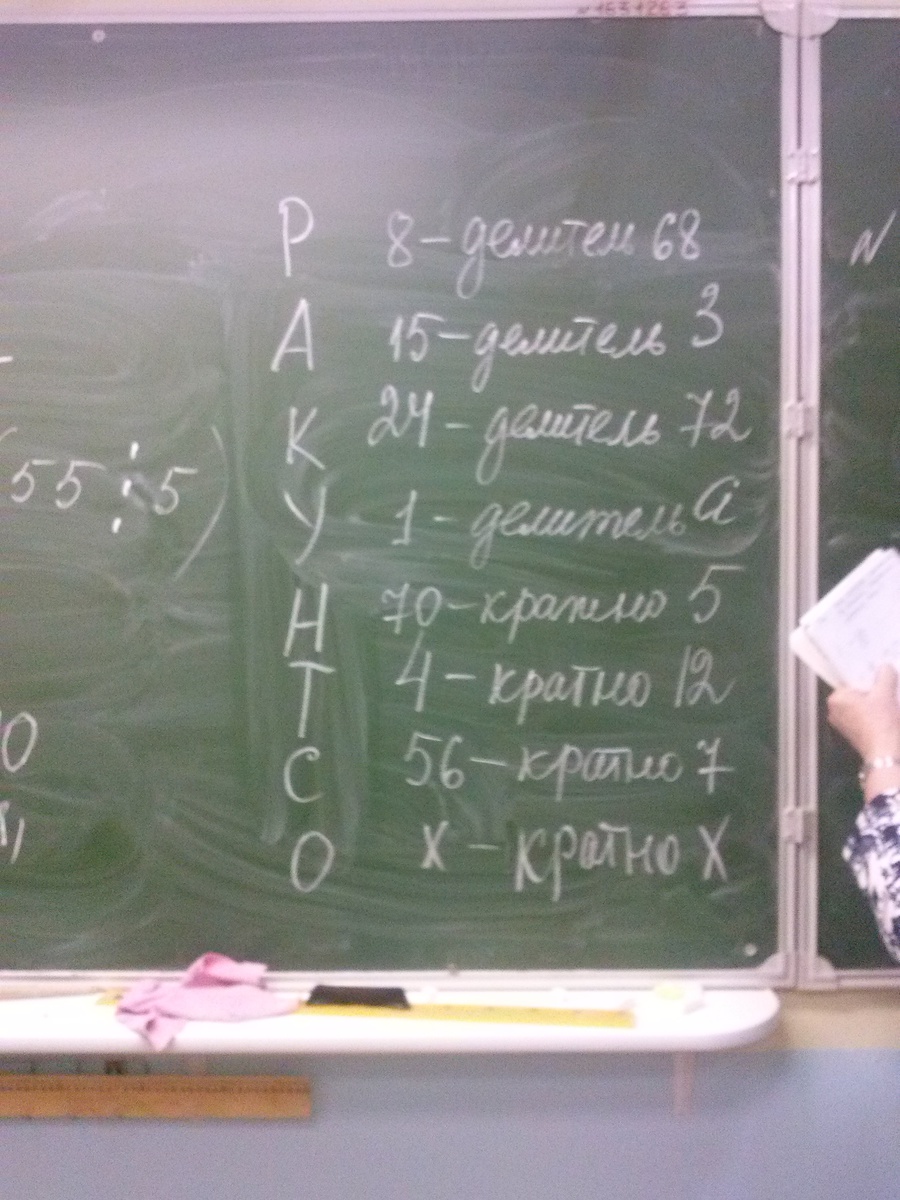 Р 8 – делител 68
А 15 – делитель 3
К 24 – делитель 72
(55 ⋮ 5)
У 1 – делитель a
Н 70 – кратно 5
Т 4 – кратно 12
С 56 – кратно 7
О х – кратно х
N